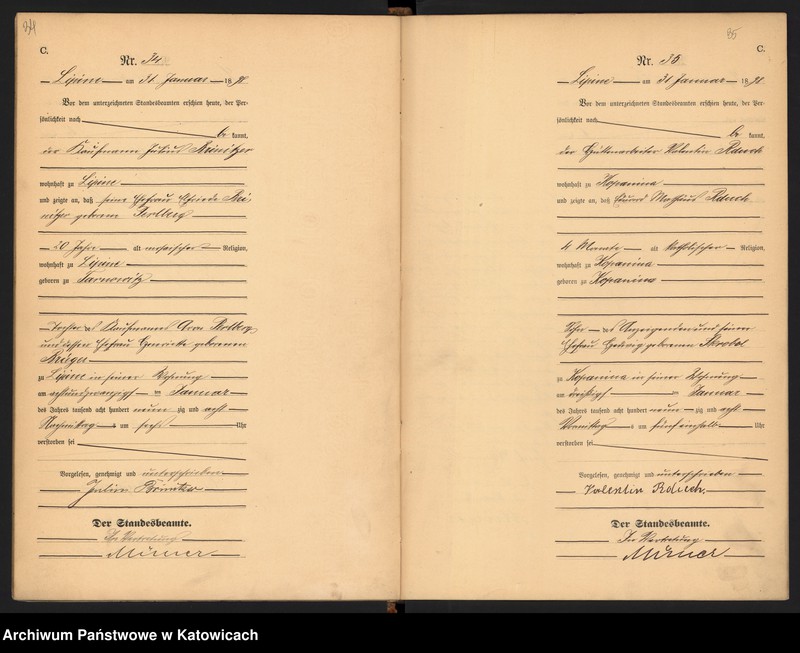 34
C.
Nr. 34
Lipine am 31 Januar 1898
Vor dem unterzeichneten Standesbeamten erschien heute, der Per-
sönlichkeit nach
be kannt,
der Kaufmann Julius
wohnhaft zu Lipine
und zeigte an, daß seine Ehefrau
geborene
20 Jahr alt mosaischer Religion,
wohnhaft zu Lipine
geboren zu Tarnowitz
Tochter des Kaufmanns
und dessen Ehefrau geborenen
Krüger
zu Lipine in seiner Wohnung
am achtundzwanzigsten Januar
des Jahres tausend acht hundert neun zig und acht
Nachmittags um sechs Uhr
verstorben sei
Vorgelesen, genehmigt und unterschrieben
Julius
Der Standesbeamte.
In Vertretung
35
C.
Nr. 35
Lipine am 31 Januar 1898
Vor dem unterzeichneten Standesbeamten erschien heute, der Per-
sönlichkeit nach
be kannt,
der Hüttenarbeiter Valentin
wohnhaft zu Kopanina
und zeigte an, daß Eduard
4 Monate alt katholischer Religion,
wohnhaft zu Kopanina
geboren zu Kopanina
Sohn des Anzeigenden und seiner
Ehefrau Hedwig geborenen
zu Kopanina in seiner Wohnung
am dreißigsten Januar
des Jahres tausend acht hundert neun zig und acht
Vormittags um fünf einhalb Uhr
verstorben sei
Vorgelesen, genehmigt und unterschrieben
Valentin
Der Standesbeamte.
In Vertretung
Archiwum Państwowe w Katowicach